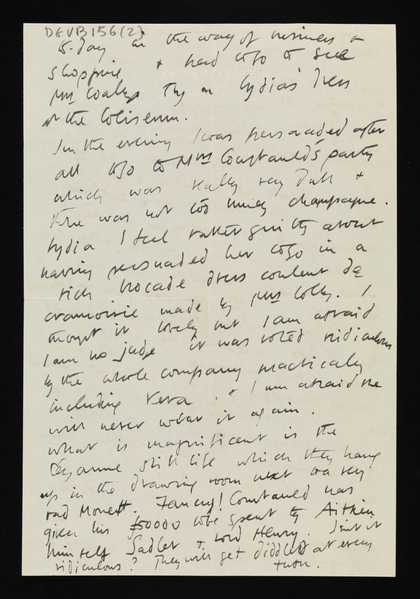 DEVB156(2)
to-day in the way of business &
shopping & had to go to see
Mrs Coaley try on Lydia's dress
at the Coliseum.
In the evening I was persuaded after
all to go to Mrs Courtauld's party
which was really very dull &
there was not too much champagne.
Lydia I feel rather guilty about
having persuaded her to go in a
rich brocade dress couleur de
made by Mrs Colly. I
thought it lovely but I am afraid
I am no judge it was voted ridiculous
by the whole company practically
including Vera & I am afraid she
will never wear it again.
What is magnificent is the
Cézanne still life which they hang
up in the drawing room next to a very
bad Monet. Fancy! Courtauld has
given his 50000 to be spent by Aitken
himself Sadler & Lord Henry. Isn't it
ridiculous? They will get diddled at every
turn.